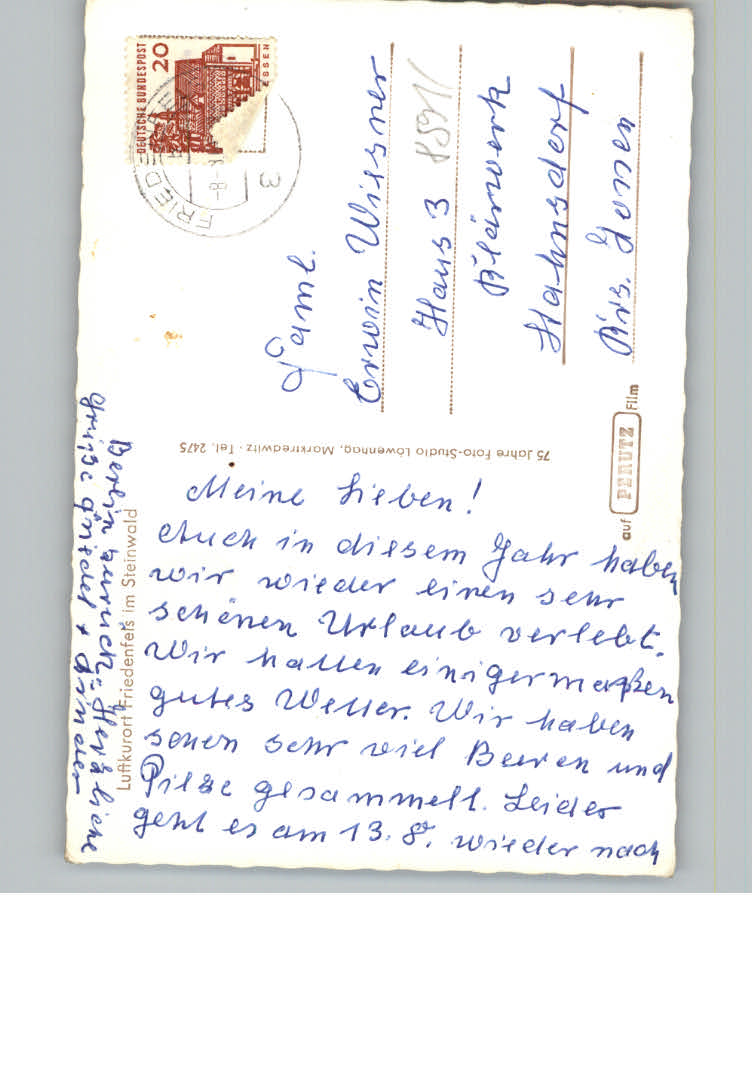 Meine Lieben!
Auch in diesem Jahr haben
wir wieder einen sehr
schönen Urlaub verlebt.
Wir hatten einigermaßen
gutes Wetter. Wir haben
schon sehr viel Beeren und
Pilze gesammelt. Leider
geht es am 13. 8. wieder nach
Berlin zurück. Herzliche
Grüße
Luftkurort Friedenfels im Steinwald
75 Jahre Foto-Studio Löwenhag, Marktredwitz · Tel. 2475
auf PERUTZ Film
Faml.
Erwin Wiesner
Haus 3
Klärwerk
Hahnsdorf
Krs.
DEUTSCHE BUNDESPOST
20
ESSEN
3